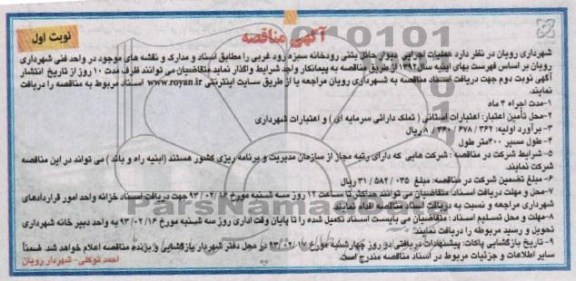 آگهی مناقصه
نوبت اول
شهرداری رویان در نظر دارد عملیات اجرایی دیوار حائل بتنی رودخانه سبزه رود غربی را مطابق اسناد و مدارک و نقشه های موجود در واحد فنی شهرداری
رویان بر اساس فهرست بهای ابنیه سال ۱۳۹۲ از طریق مناقصه به پیمانکار واجد شرایط واگذار نماید متقاضیان می توانند ظرف مدت ۱۰ روز از تاریخ انتشار
آگهی نوبت دوم جهت دریافت اسناد مناقصه به شهرداری رویان مراجعه یا از طریق سایت اینترنتی www.royan.ir اسناد مربوط به مناقصه را دریافت
نمایند.
۱-مدت اجراء ۴ ماه
۲-محل تأمین اعتبار: اعتبارات استانی ( تملک دارائی سرمایه ای ) و اعتبارات شهرداری
۳- برآورد اولیه: ۳۶۲ / ۶۷۸ / ۳۶۰ / ۸ ریال
۴- طول مسیر ۳۰۰متر طول
۵- شرایط شرکت در مناقصه : شرکت هایی که دارای رتبه مجاز از سازمان مدیریت و برنامه ریزی کشور هستند (ابنیه راه و باند ) می تواند در این مناقصه
شرکت نمایند.
۶- مبلغ تضمین شرکت در مناقصه: مبلغ ۰۳۵ / ۵۸۲ / ۳۱ ریال
۷-محل و مهلت دریافت اسناد: متقاضیان می توانند حداکثر تا ساعت ۱۲ روز سه شنبه مورخ ۹۳/۰۲/۱۶ جهت دریافت اسناد خزانه واحد امور قراردادهای
شهرداری مراجعه و نسبت به دریافت اسناد مناقصه اقدام نمایند
۸-مهلت و محل تسلیم اسناد : متقاضیان می بایست اسناد تکمیل شده را تا پایان وقت اداری روز سه شنبه مورخ ۹۳/۰۲/۱۶ به واحد دبیر خانه شهرداری
تحویل و رسید مربوطه را دریافت نمایند.
۹- تاریخ بازگشایی پاکات: پیشنهادات دریافتی در روز چهارشنبه مورخ ۹۳/۰۲/۱۷ در محل دفتر شهردار بازگشایی و برنده مناقصه اعلام خواهد شد. ضمناً
سایر اطلاعات و جزئیات مربوط در اسناد مناقصه مندرج است.
احمد توکلی- شهردار رویان